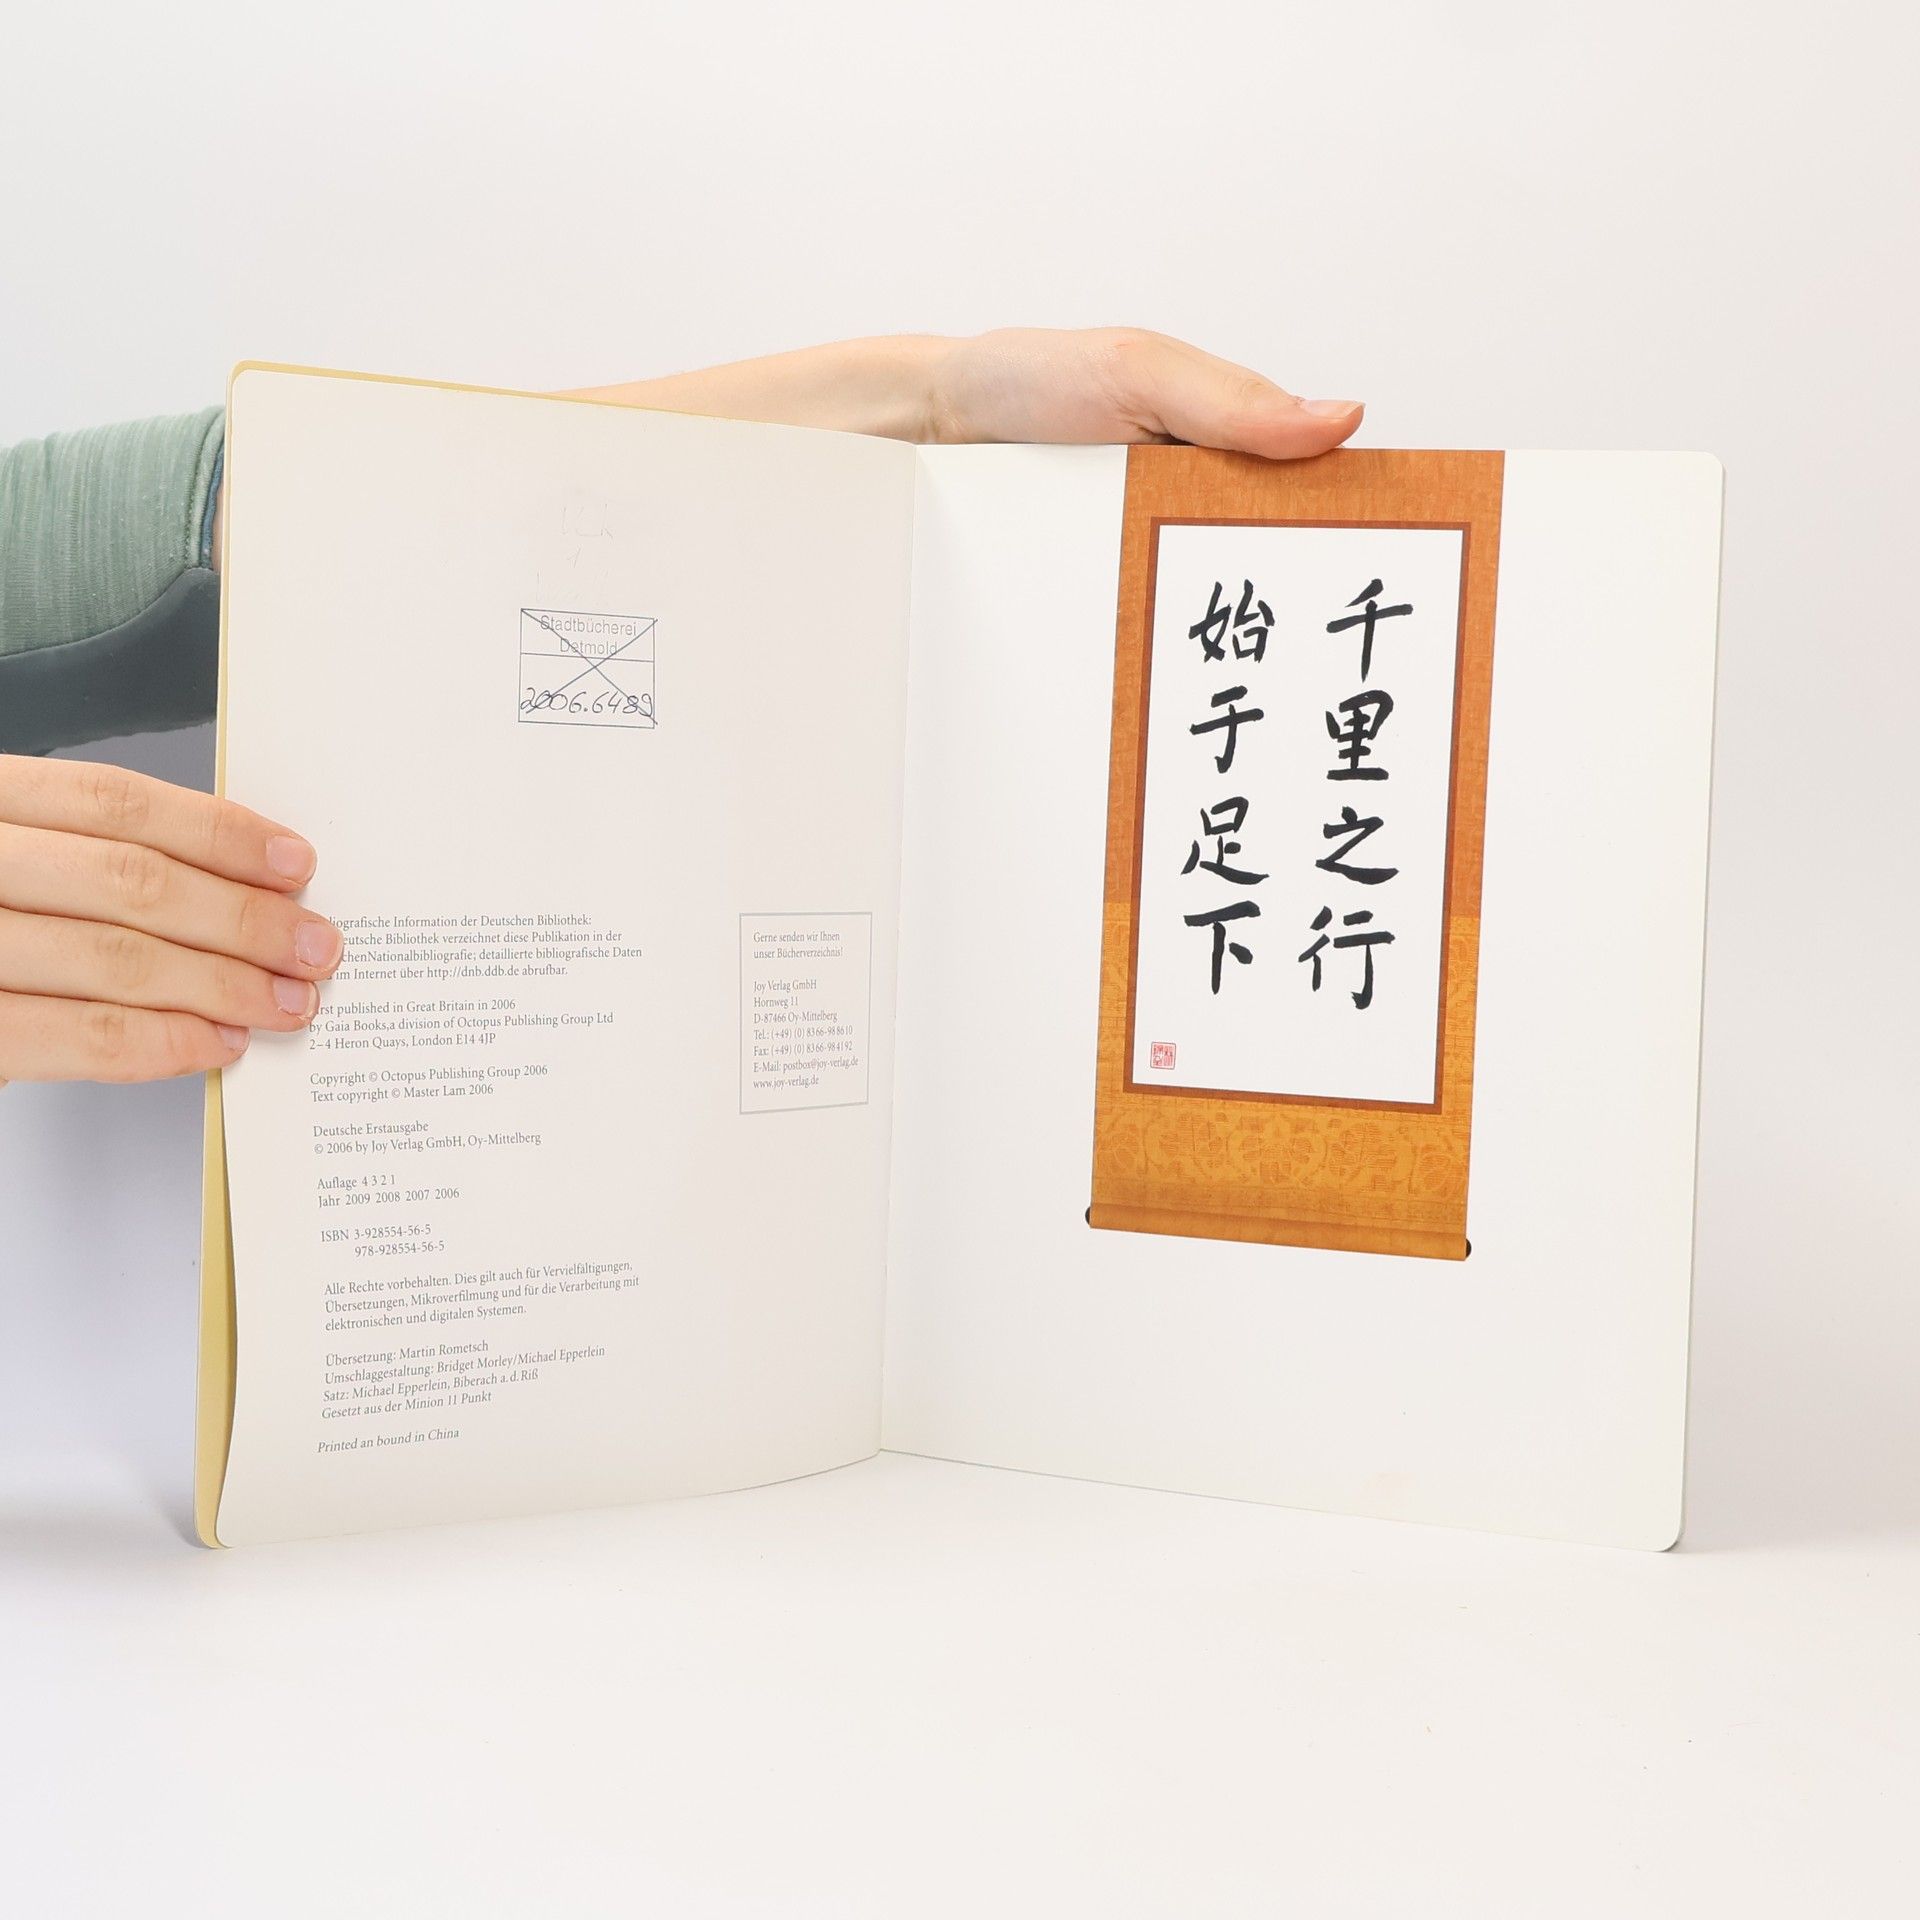 Stadtbücherei
Detmold
2006.6489
Bibliografische Information der Deutschen Bibliothek:
eutsche Bibliothek verzeichnet diese Publikation in der
chenNationalbibliografie; detaillierte bibliografische Daten
im Internet über http://dnb.ddb.de abrufbar.
First published in Great Britain in 2006
by Gaia Books,a division of Octopus Publishing Group Ltd
2–4 Heron Quays, London E14 4JP
Copyright © Octopus Publishing Group 2006
Text copyright © Master Lam 2006
Deutsche Erstausgabe
© 2006 by Joy Verlag GmbH, Oy-Mittelberg
Auflage 4 3 2 1
Jahr 2009 2008 2007 2006
ISBN 3-928554-56-5
978-928554-56-5
Alle Rechte vorbehalten. Dies gilt auch für Vervielfältigungen,
Übersetzungen, Mikroverfilmung und für die Verarbeitung mit
elektronischen und digitalen Systemen.
Übersetzung: Martin Rometsch
Umschlaggestaltung: Bridget Morley/Michael Epperlein
Satz: Michael Epperlein, Biberach a. d. Riß
Gesetzt aus der Minion 11 Punkt
Printed an bound in China
Gerne senden wir Ihnen
unser Bücherverzeichnis!
Joy Verlag GmbH
Hornweg 11
D-87466 Oy-Mittelberg
Tel.: (+49) (0) 8366-98 86 10
Fax: (+49) (0) 8366-98 41 92
E-Mail: postbox@joy-verlag.de
www.joy-verlag.de
千里之行
始于足下